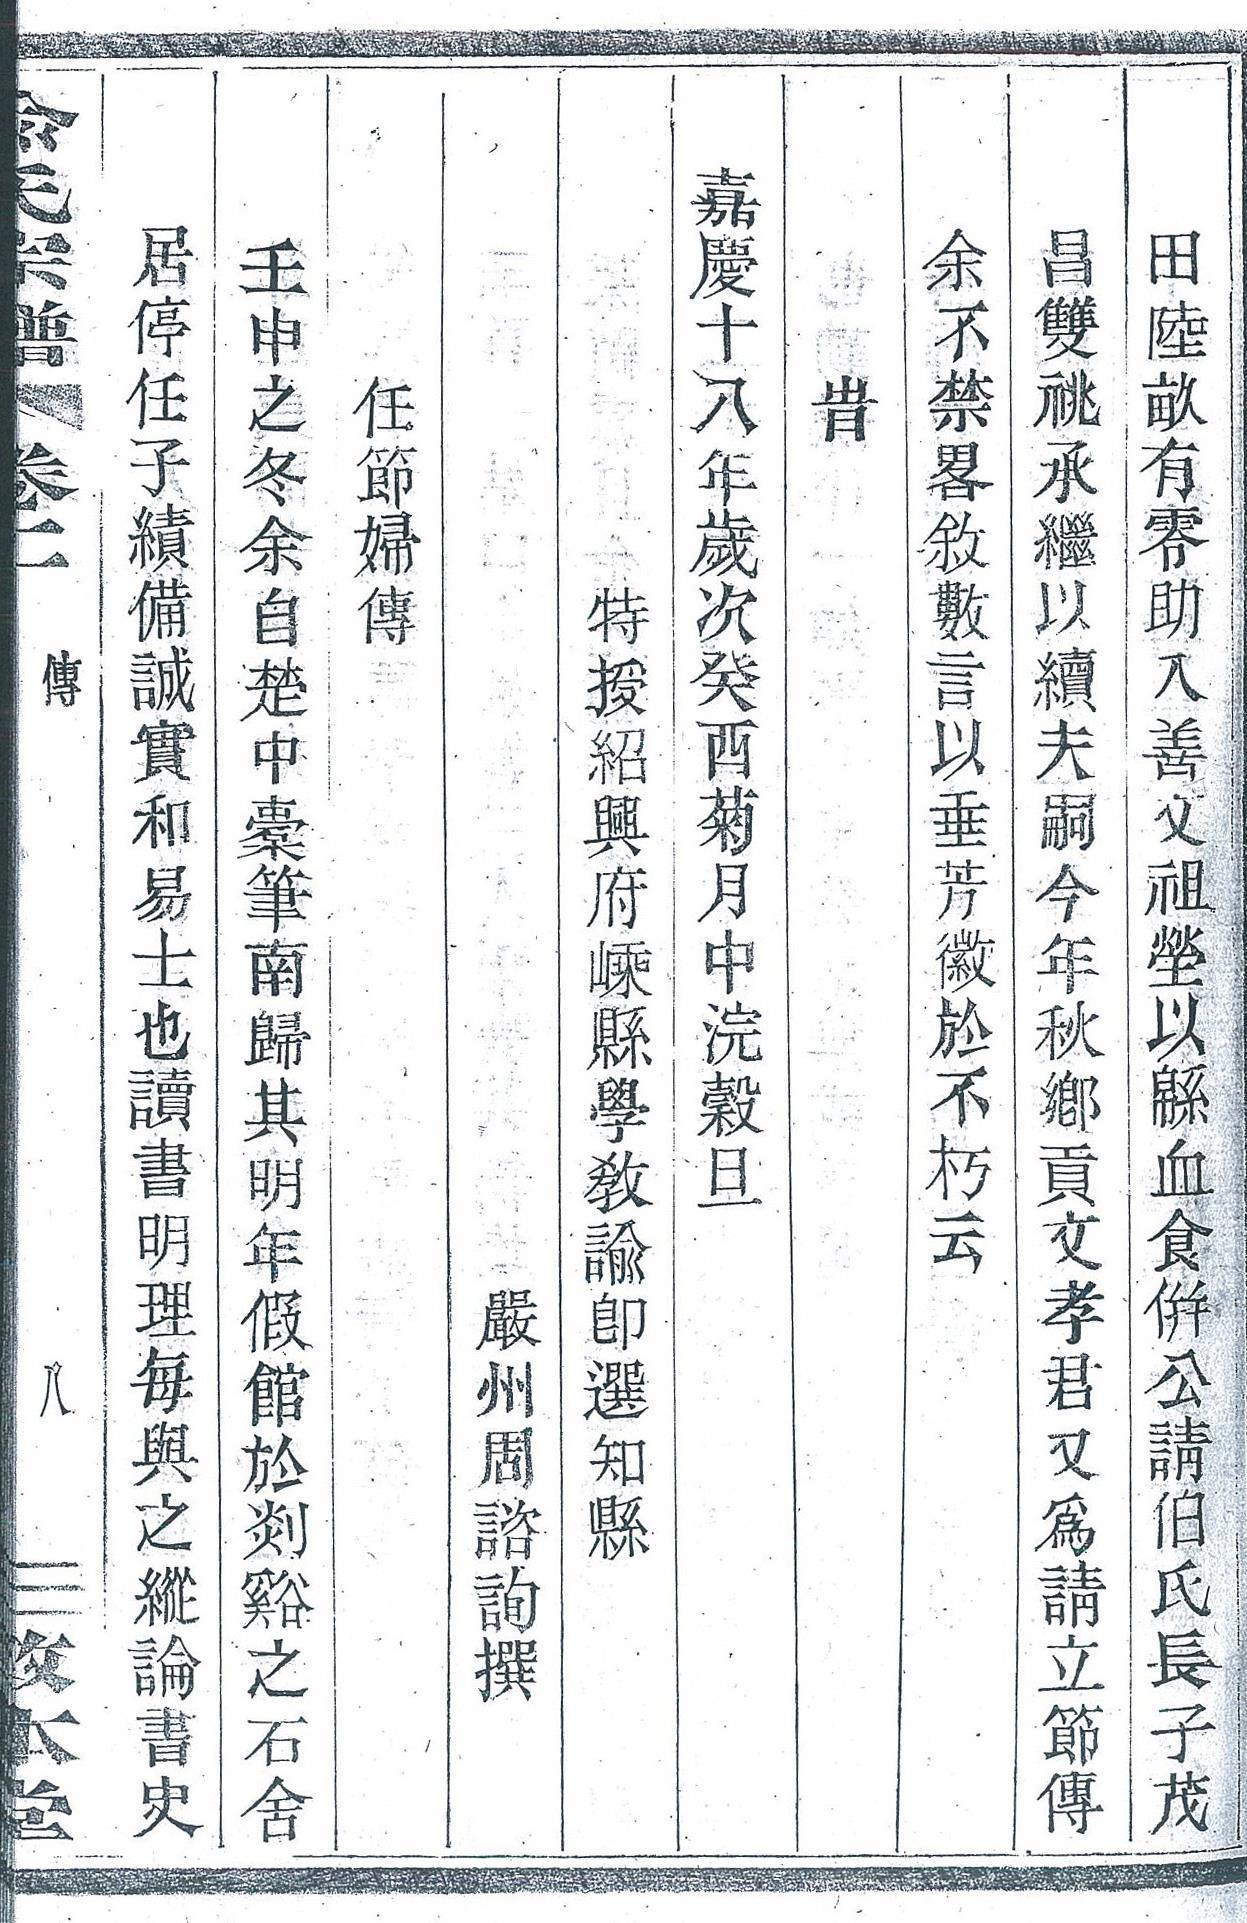 田陸畝有零助入善文祖塋以緜血食倂公請伯氏長子茂
昌雙祧承繼以續夫嗣今年秋鄉貢文孝君又爲請立節傳
余不禁畧敘數言以垂芳徽於不朽云
旹
嘉慶十八年歲次癸酉菊月中浣穀旦
特授紹興府嵊縣學敎諭卽選知縣
嚴州周諮詢撰
任節婦傳
壬申之冬余自楚中橐筆南歸其明年假館於剡谿之石舍
居停任子績備誠實和易士也讀書明理每與之縱論書史
氏宗譜 卷二 傳 八 本堂